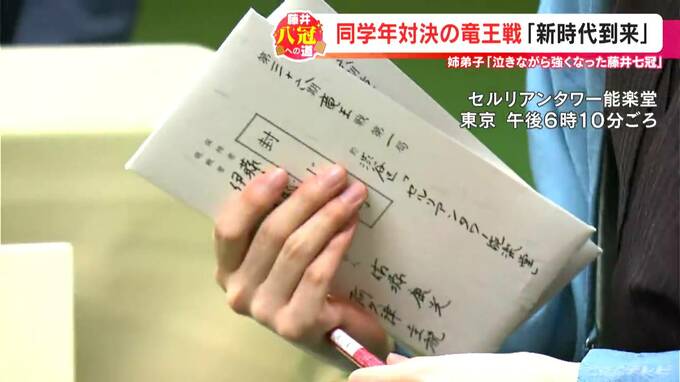 藤井
八冠
への道
同学年対決の竜王戦「新時代到来」
姉弟子「泣きながら強くなった藤井七冠」
セルリアンタワー能楽堂
東京 午後6時10分ごろ
第三十六期 竜王戦 第一局
於 渋谷区「セルリアンタワー能楽堂
封じ
伊藤
佐藤康光
阿久津主税
テレビ